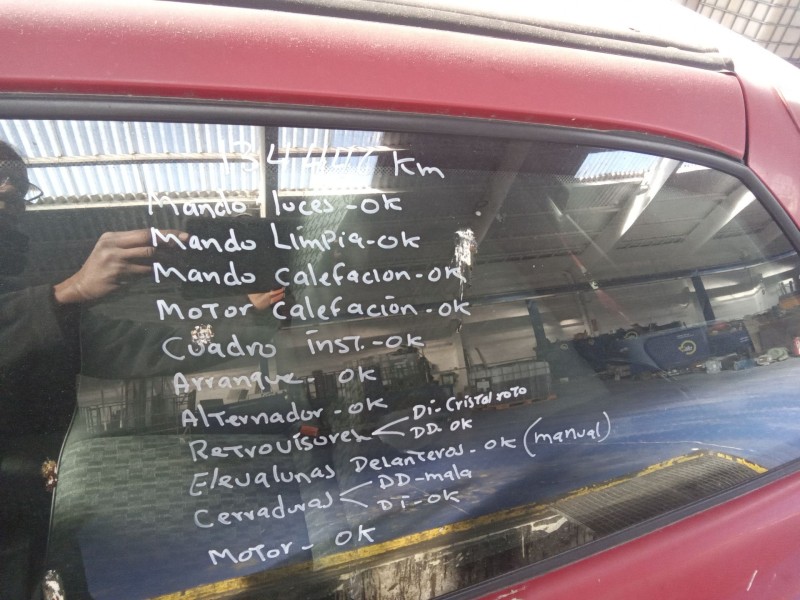 Km
Mando luces - OK
Mando Limpia - OK
Mando calefacion - OK
Motor calefación - OK
Cuadro inst. - OK
Arranque OK
Alternador - OK
Retrovisores Di - Cristal roto
DD - OK
Elevalunas Delanteros - OK (manual)
Cerraduras DD - mala
DI - OK
Motor - OK